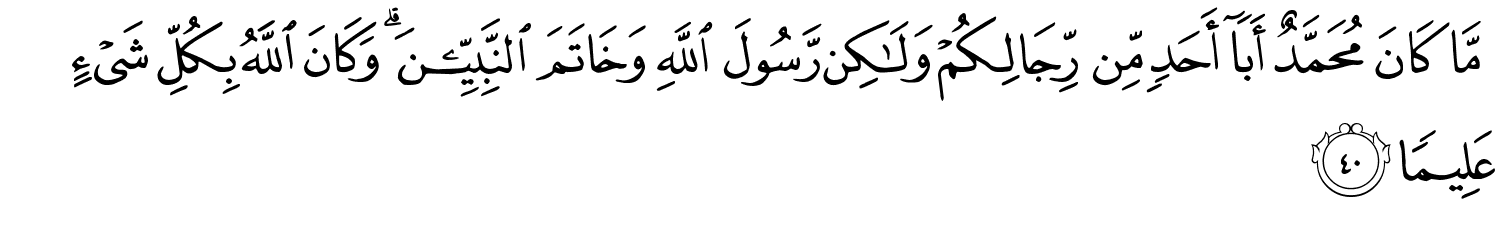 مَّا كَانَ مُحَمَّدٌ أَبَآ أَحَدٍ مِّن رِّجَالِكُمْ وَلَـٰكِن رَّسُولَ ٱللَّهِ وَخَاتَمَ ٱلنَّبِيِّـۧنَ ۗ وَكَانَ ٱللَّهُ بِكُلِّ شَىْءٍ
عَلِيمًا ٤٠